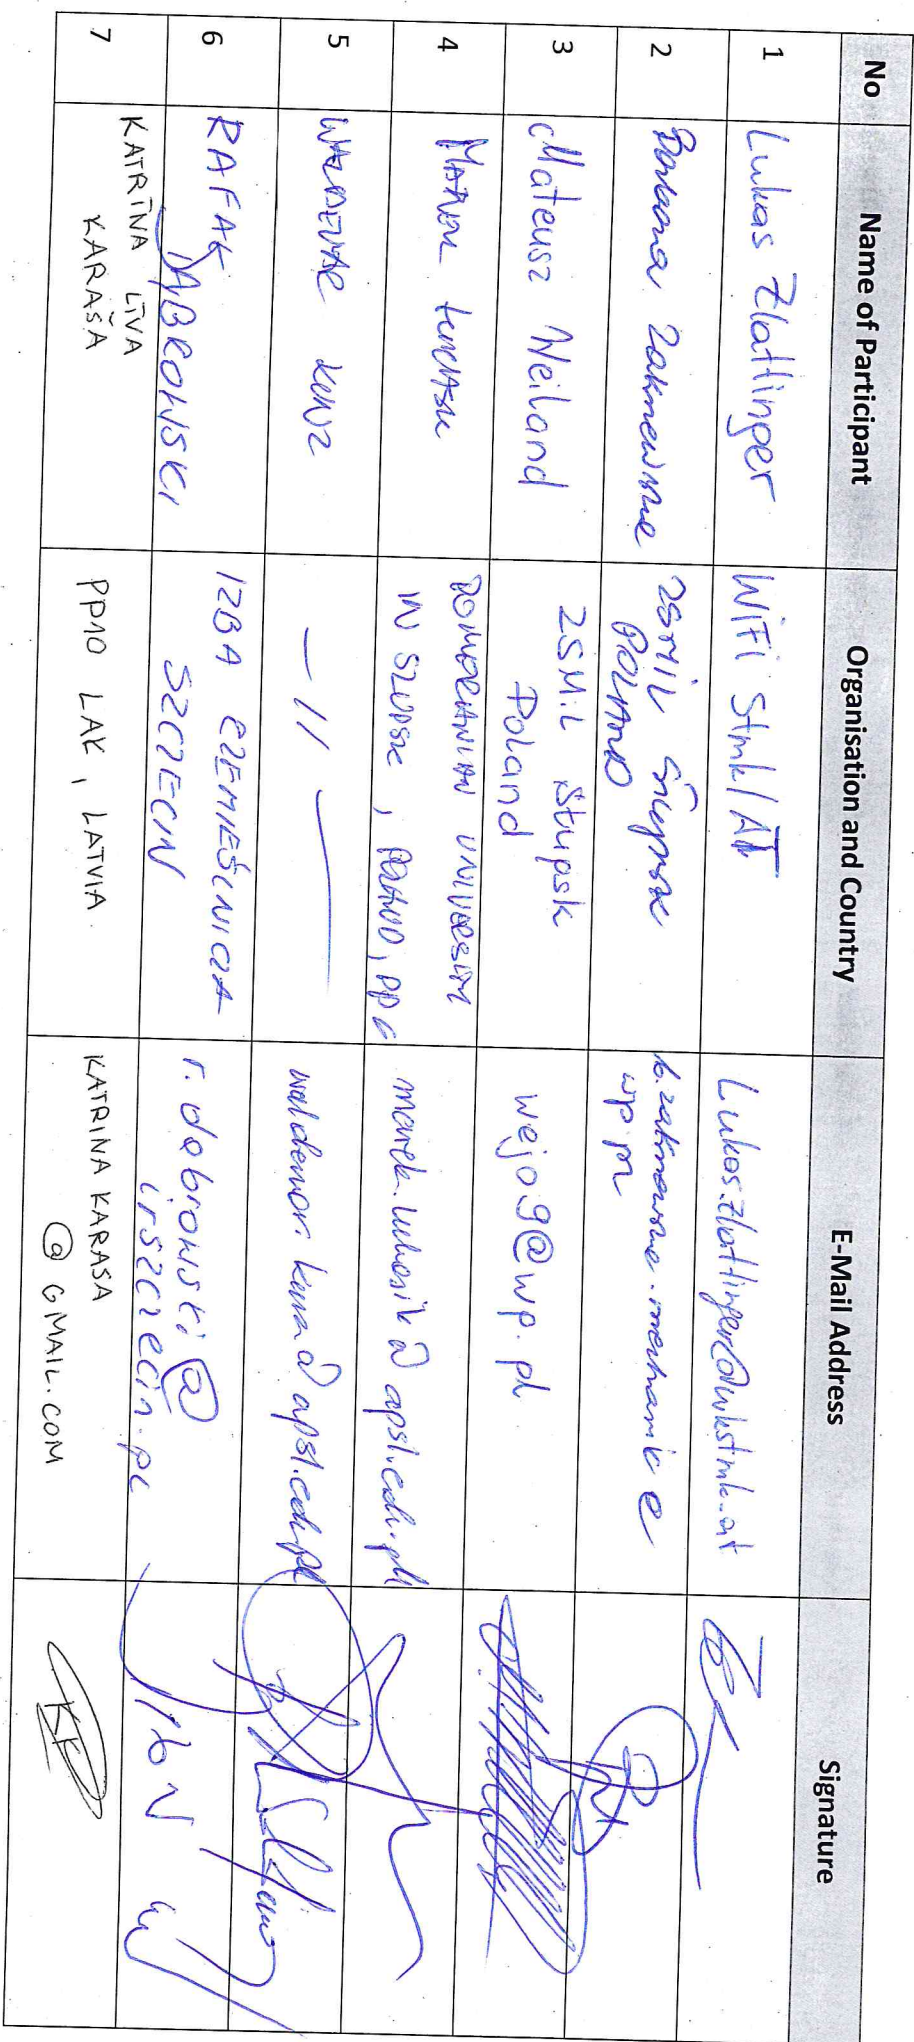 No Name of Participant Organisation and Country E-Mail Address Signature
1 Lukas Zlattinger WiFi Stmk/AT Lukas.Zlattinger@wkstmk.at
2 POLAND
wp.pl
3 Mateusz Weiland ZSMiL Słupsk
Poland
wejo9@wp.pl
4 POMERANIAN UNIVERSITY
IN SŁUPSK, POLAND, PP6
marek.lukasik@apsl.edu.pl
5 WALDEMAR KUNZ — 11 —
6 RAFAŁ DĄBROWSKI IZBA RZEMIEŚLNICZA
SZCZECIN
r.dabrowski@
irszczecin.pl
7 KATRĪNA LĪVA
KARAŠA
PP10 LAK, LATVIA
KATRINA KARASA
@ GMAIL.COM